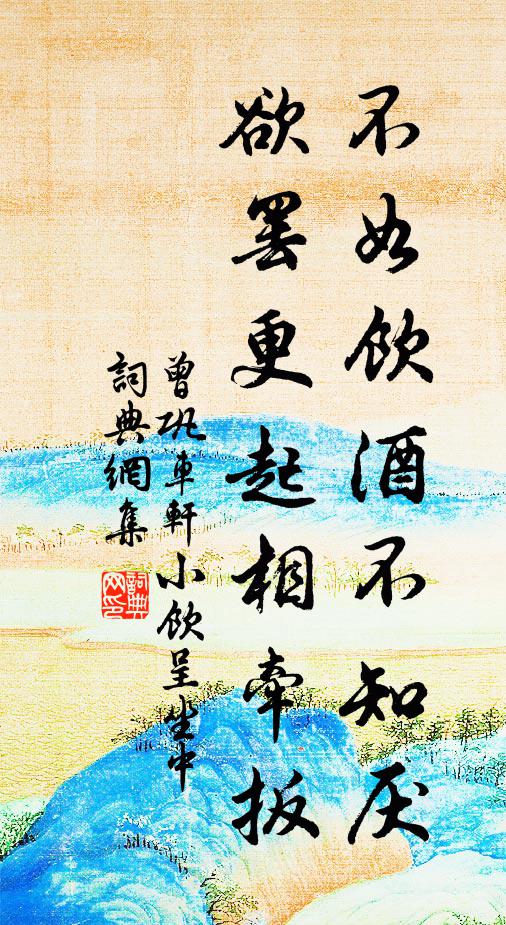 不如飲酒不知厌
欲罢更起相牵扳
曾巩車軒小飲呈坐中
詞典網集
詞典網印